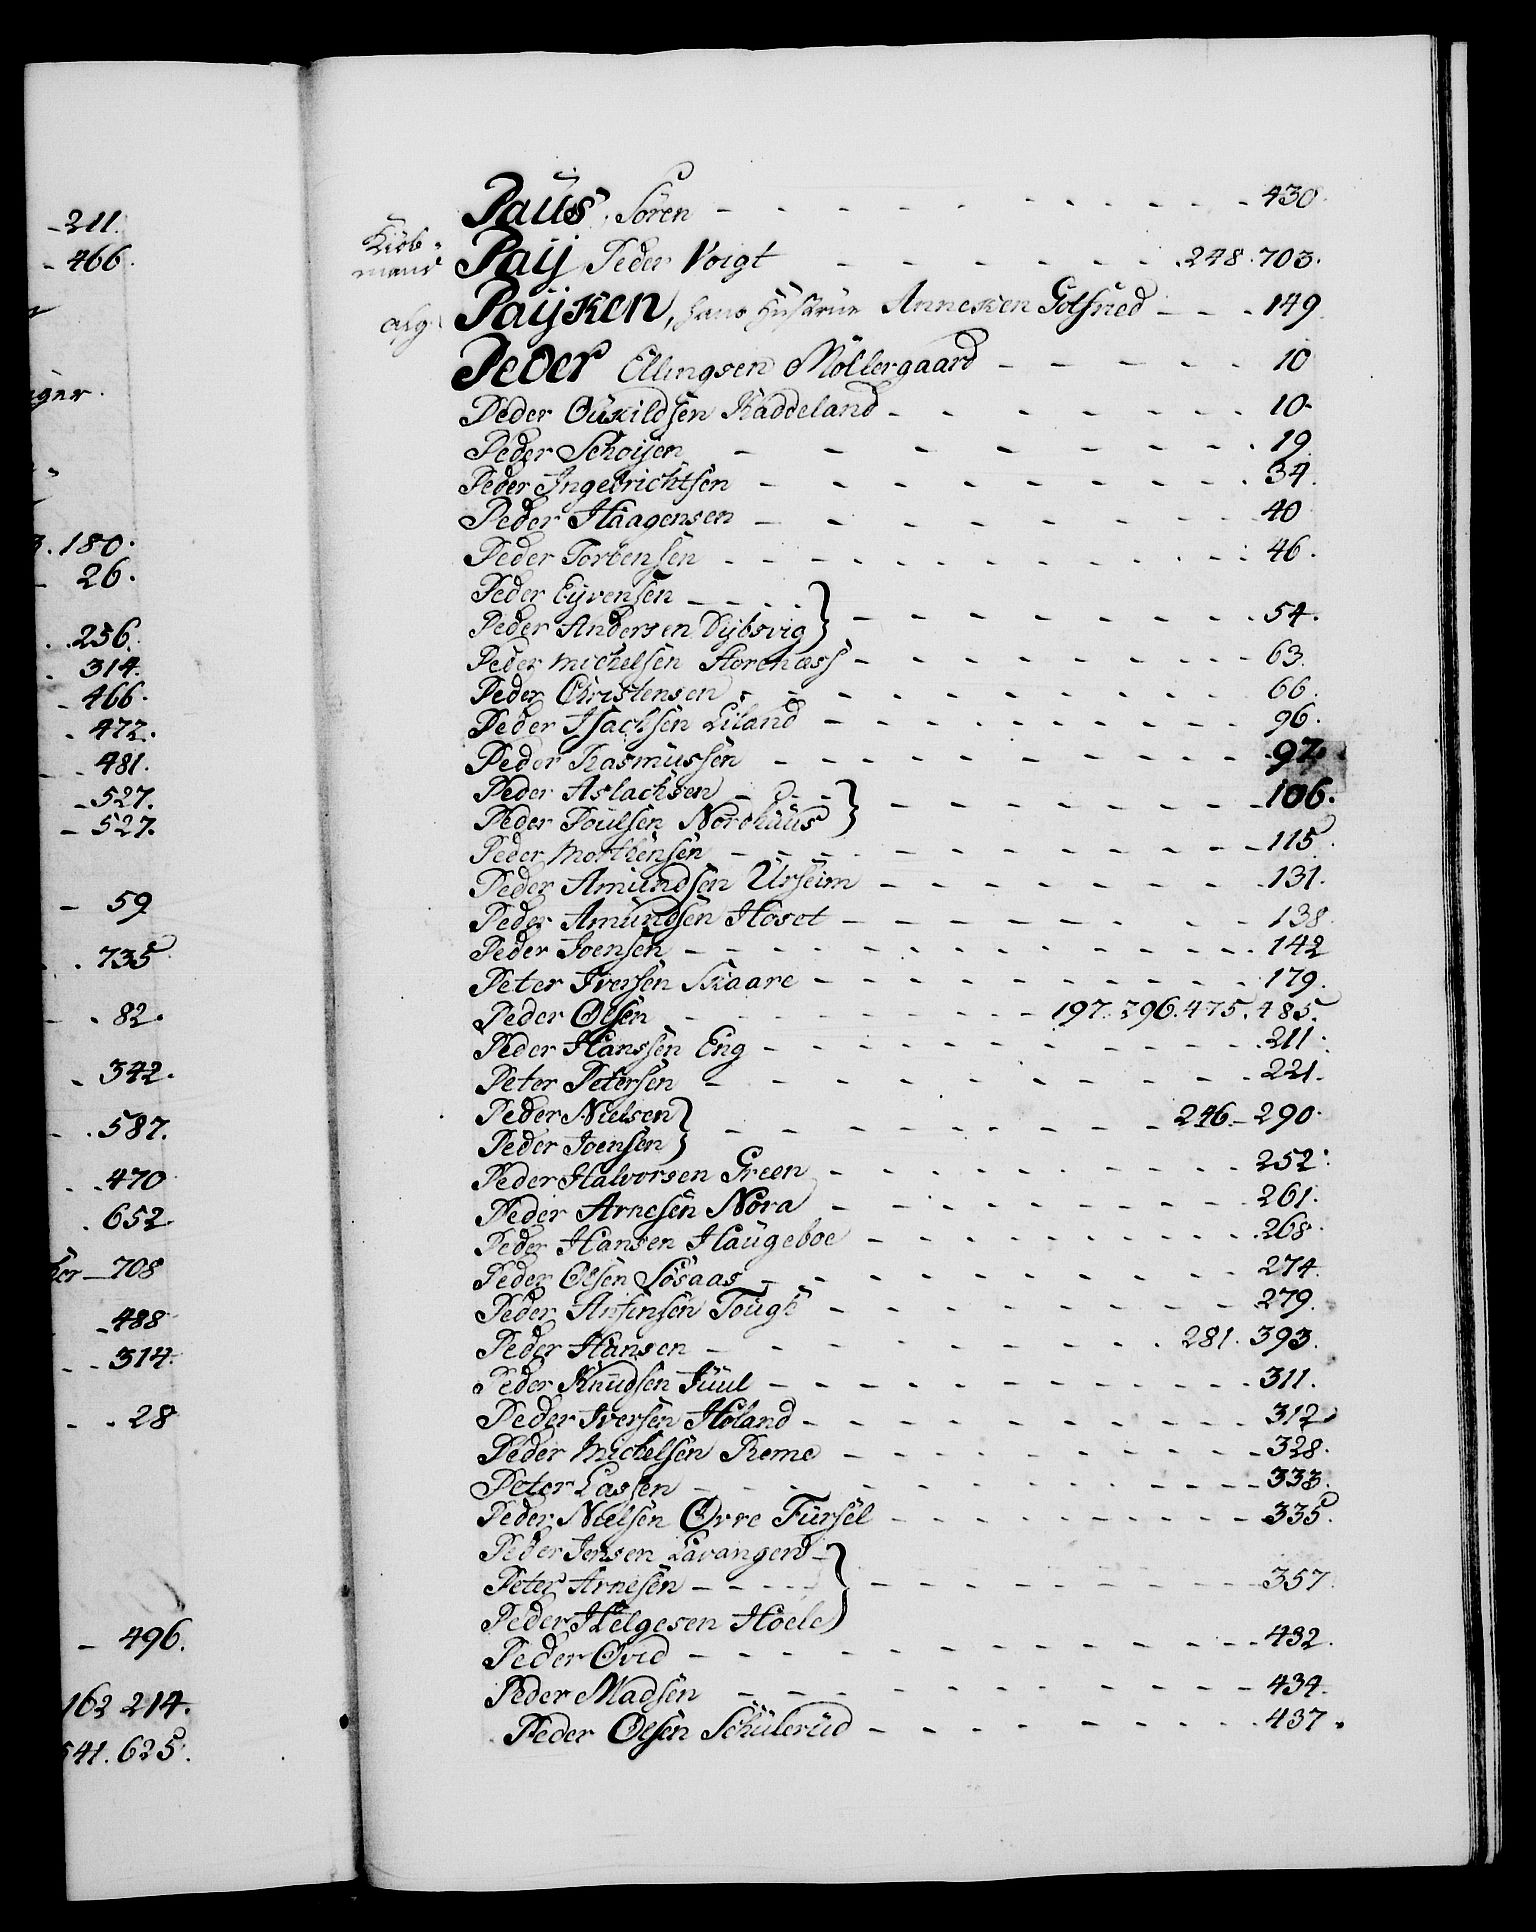 -211.
- 466.
3. 180.
- 26.
. 256.
. 314.
- 466.
. 472.
- . 481.
- 527.
- 527.
- 59
. 735
- . 82.
. 342.
- . 587.
. . 470
. 652
708
- 488
- . 314.
- . 28
- 496.
162 214.
541. 625.
Paüs, Sören - - - 430.
Kiöb-
mand Paÿ Peder Voigt - - - 248. 703.
afg. Paÿken, hans Hustrue Anneken Gotfried - - - 149.
Peder Ellingsen Möllergaard - - - 10
Peder Güskildsen Raddeland - - - 10.
Peder Schöijen - - - 19.
Peder Ingebrichtsen - - - 34.
Peder Haagensen - - - 40
Peder Torbensen - - - 46.
Peder Eÿvensen - - -
Peder Andersen Dÿbsvig } - - - 54.
Peder Michelsen Storenæss - - - 63.
Peder Christensen - - - 66.
Peder Isachsen Eiland - - - 96.
Peder Rasmussen - - - 92.
Peder Aslachsen - - -
Peder Poülsen Nordhüüs } - - - 106.
Peder Morthensen - - - 115.
Peder Amundsen Urheim - - - 131.
Peder Amündsen Hoset - - - 138.
Peder Joensen - - - 142
Peter Iversen Skaare - - - 179.
Peder Olsen - - - 197. 296. 475. 485.
Peder Hanssen Eng - - - 211.
Peter Petersen - - - 221.
Peder Nielsen
Peder Joensen } - - - 246. - 290.
Peder Halvorsen Green - - - 252.
Peder Arnesen Nora - - - 261.
Peder Hansen Haügeboe - - - 268.
Peder Olsen Sösaas - - - 274.
Peder Anfinsen Tough - - - 279.
Peder Hansen - - - 281. 393.
Peder Knudsen Juul - - - 311.
Peder Iversen Höland - - - 312.
Peder Michelsen Reme - - - 328.
Peter Lassen - - - 333.
Peder Nielsen Øvre Fürsel - - - 335.
Peder Jensen Lavangen -
Peter Arnesen - - - } - - - 357.
Peder Helgesen Hoele
Peder Ovid - - - 432.
Peder Madsen - - - 434.
Peder Olsen Schülerüd - - - 437.